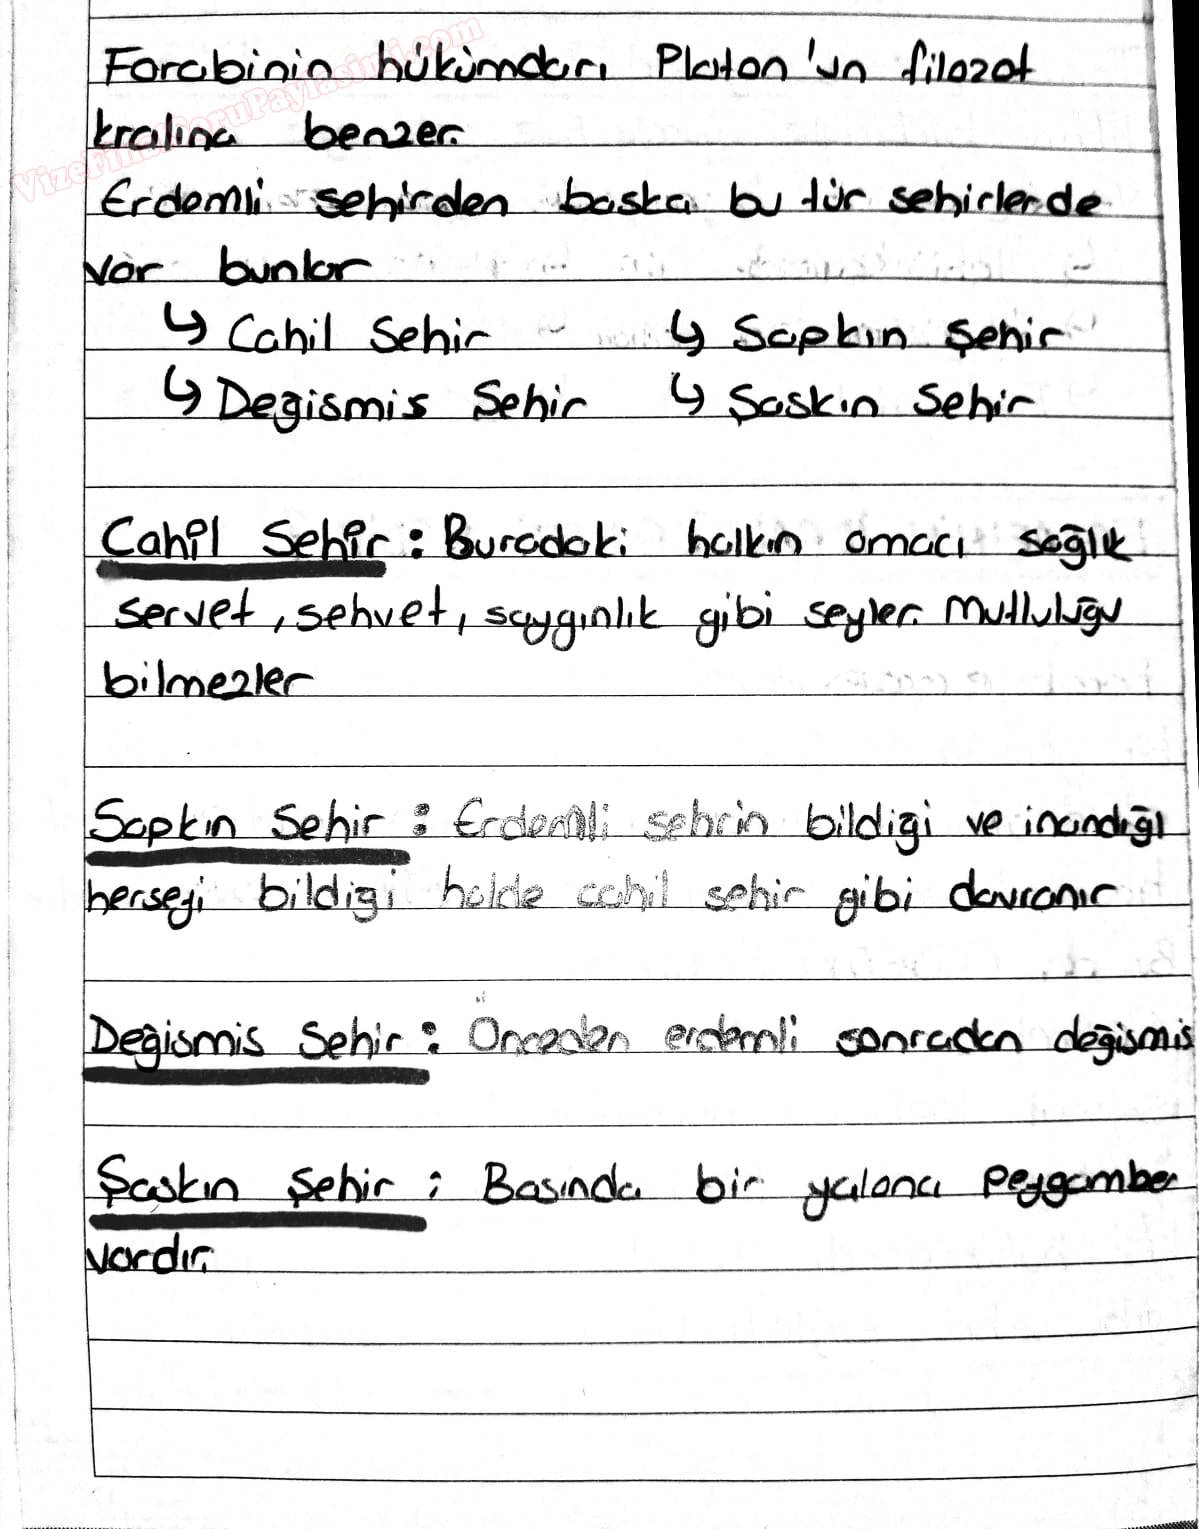 Farabinin hükümdarı Platon'un filozof
kralına benzer.
Erdemli sehirden baska bu tür sehirlerde
var bunlar
↳ Cahil Sehir ↳ Sapkın Şehir
↳ Değismis Sehir ↳ Saskın Sehir
Cahil Sehir : Buradaki halkın amacı sağlık
servet, sehvet, saygınlık gibi seyler. Mutluluğu
bilmezler
Sapkın Sehir : Erdemli sehrin bildiği ve inandığı
herseyi bildigi halde cahil sehir gibi davranır
Değismis Sehir : Önceden erdemli sonradan değismis
Şaskın Şehir : Basında bir yalancı peygamber
vardır.
VizeFinalSoruPaylasimi.com